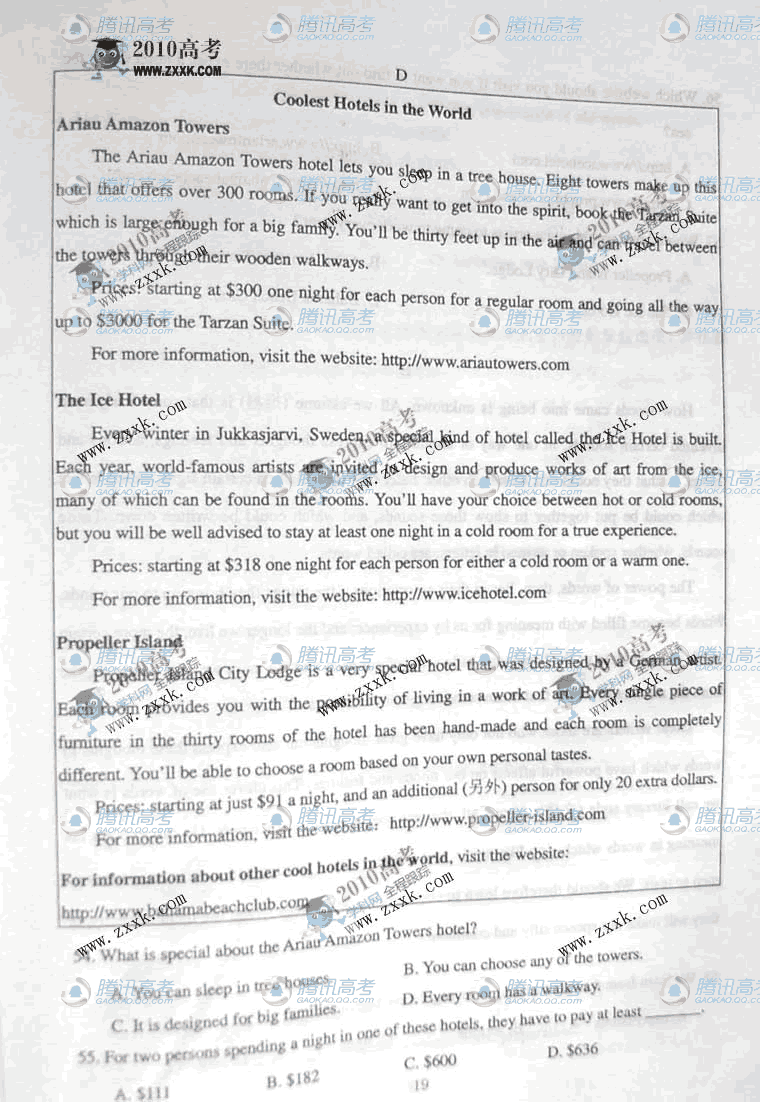 2010高考
WWW.ZXXK.COM
D
Coolest Hotels in the World
Ariau Amazon Towers
The Ariau Amazon Towers hotel lets you sleep in a tree house. Eight towers make up this
hotel that offers over 300 rooms. If you really want to get into the spirit, book the Tarzan Suite
which is large enough for a big family. You'll be thirty feet up in the air and can travel between
the towers through their wooden walkways.
Prices: starting at $300 one night for each person for a regular room and going all the way
up to $3000 for the Tarzan Suite.
For more information, visit the website: http://www.ariautowers.com
The Ice Hotel
Every winter in Jukkasjarvi, Sweden, a special kind of hotel called the Ice Hotel is built.
Each year, world-famous artists are invited to design and produce works of art from the ice,
many of which can be found in the rooms. You'll have your choice between hot or cold rooms,
but you will be well advised to stay at least one night in a cold room for a true experience.
Prices: starting at $318 one night for each person for either a cold room or a warm one.
For more information, visit the website: http://www.icehotel.com
Propeller Island
Propeller Island City Lodge is a very special hotel that was designed by a German artist.
Each room provides you with the possibility of living in a work of art. Every single piece of
furniture in the thirty rooms of the hotel has been hand-made and each room is completely
different. You'll be able to choose a room based on your own personal tastes.
Prices: starting at just $91 a night, and an additional (另外) person for only 20 extra dollars.
For more information, visit the website: http://www.propeller-island.com
For information about other cool hotels in the world, visit the website:
http://www.bahamabeachclub.com
54. What is special about the Ariau Amazon Towers hotel?
A. You can sleep in tree houses.
B. You can choose any of the towers.
C. It is designed for big families.
D. Every room has a walkway.
55. For two persons spending a night in one of these hotels, they have to pay at least ______.
A. $111
B. $182
C. $600
D. $636
19